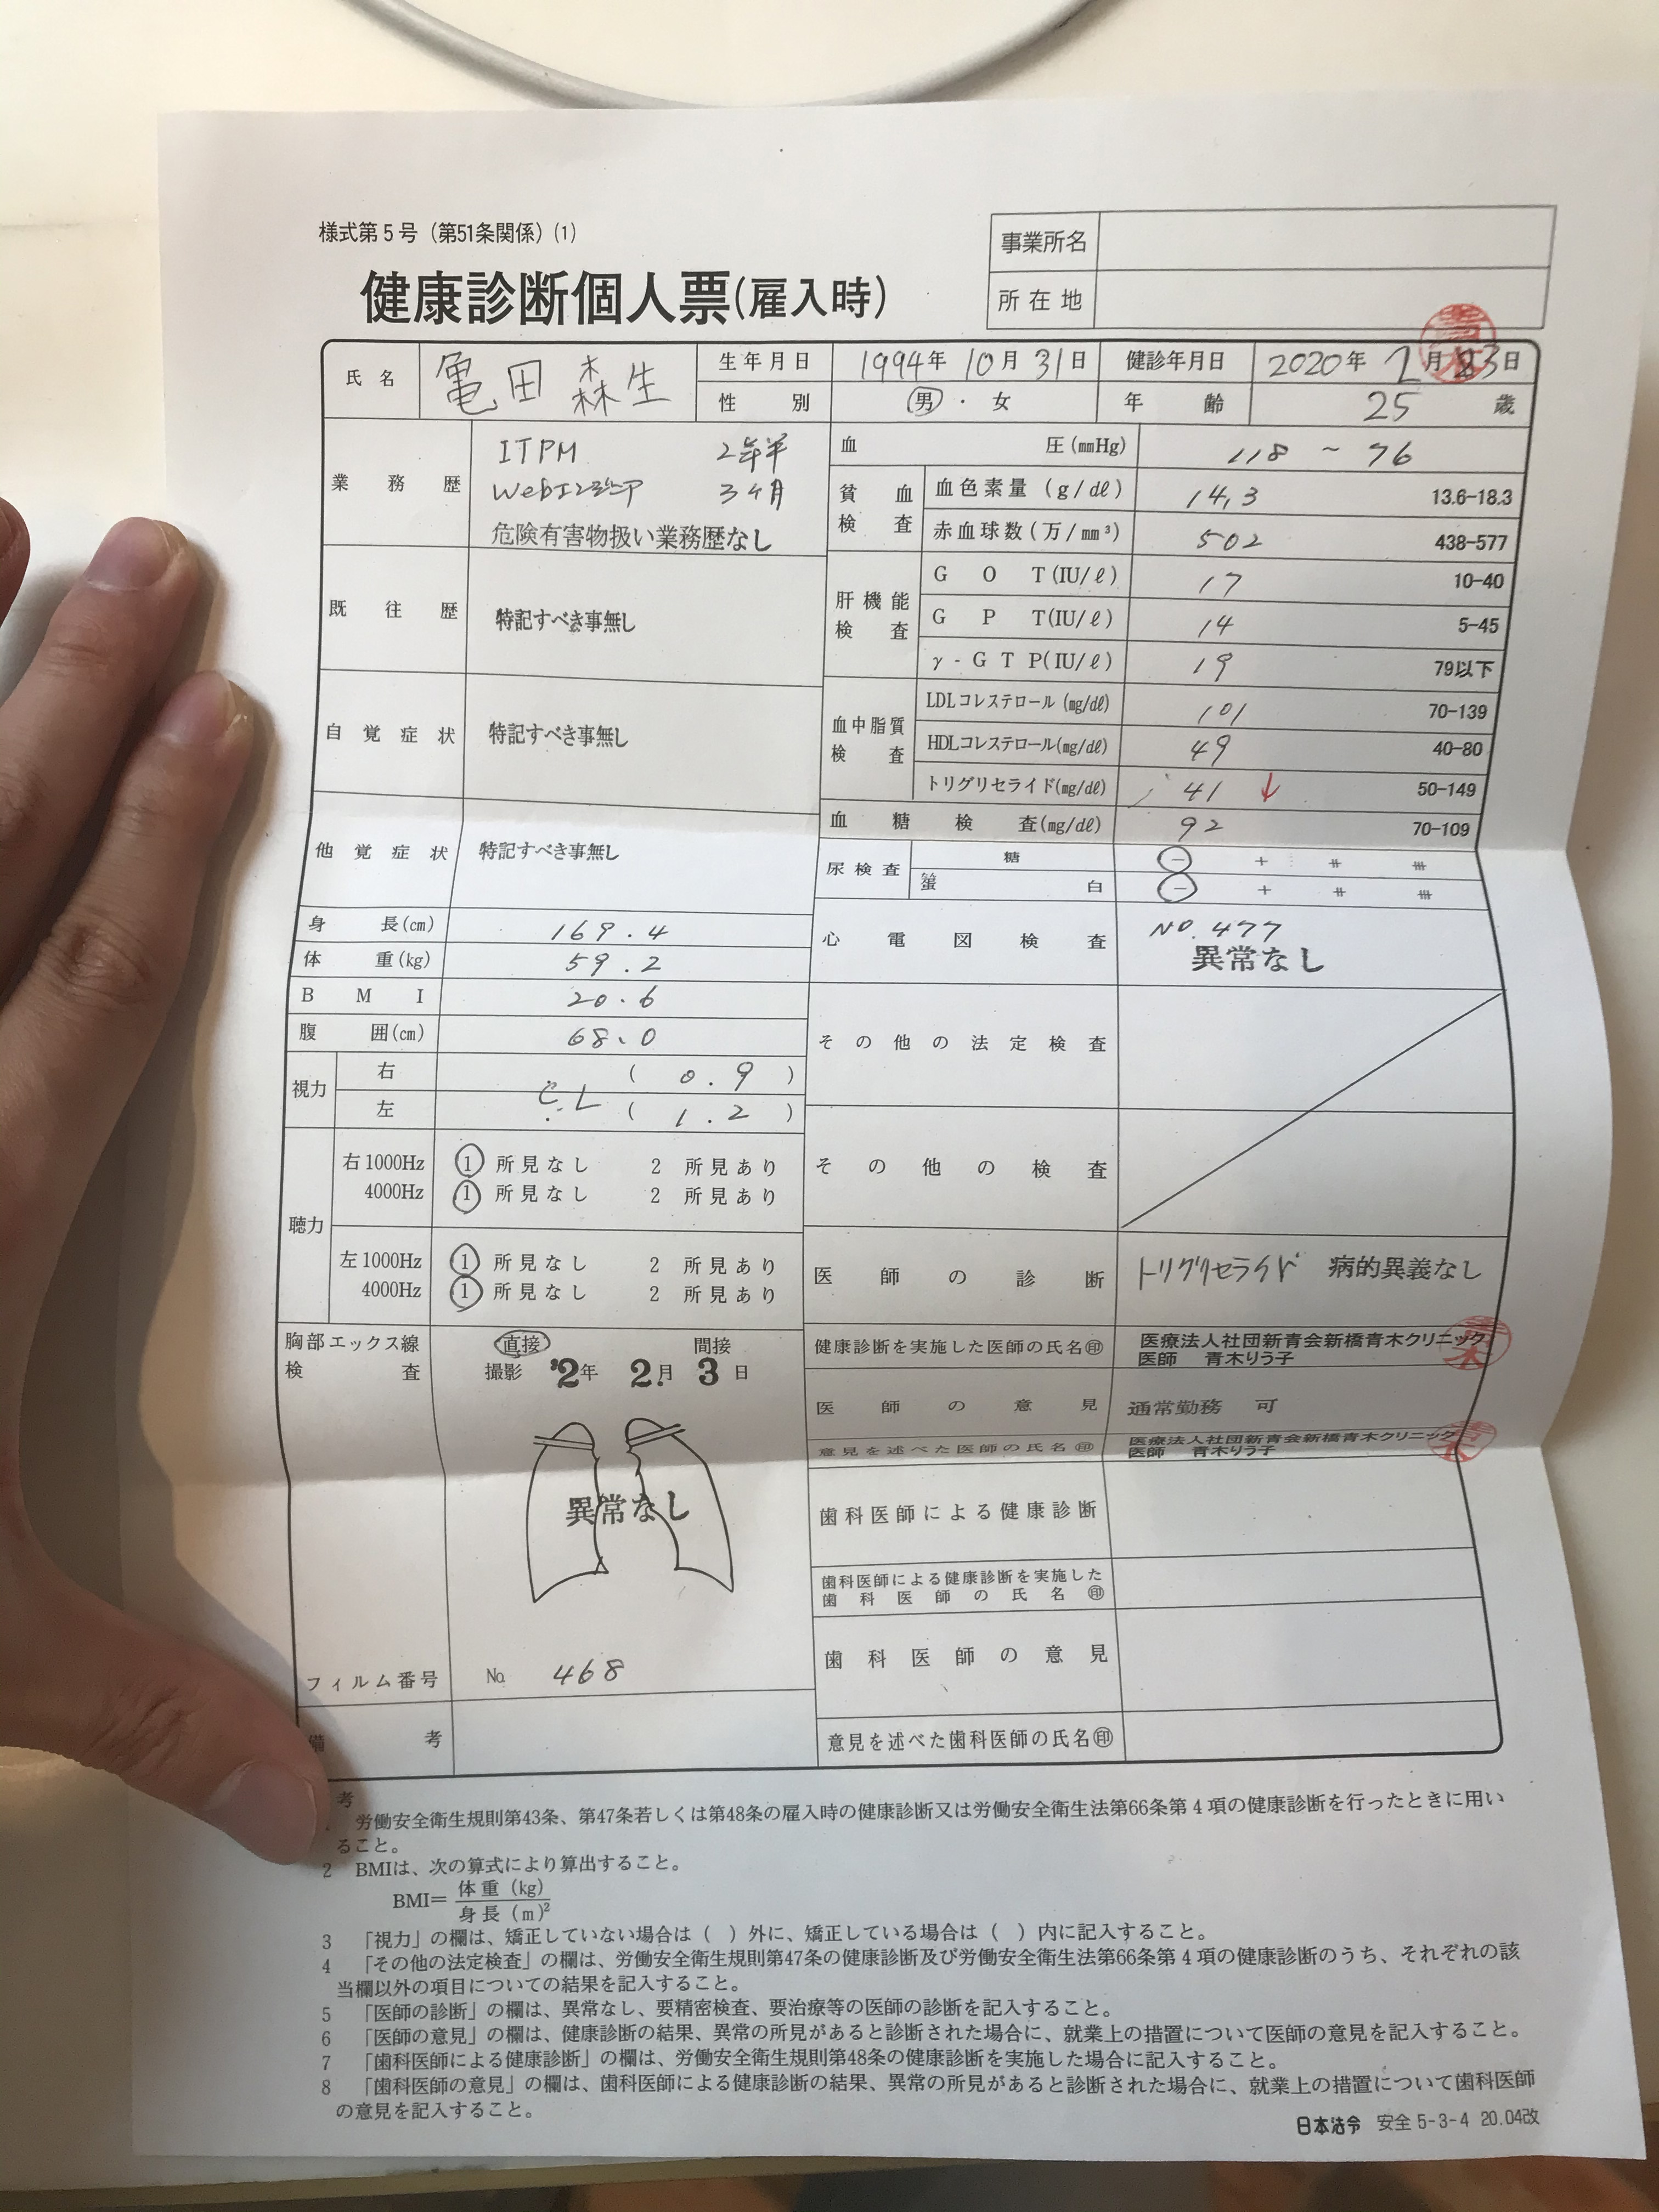 様式第5号（第51条関係）(1)
健康診断個人票(雇入時)
事業所名
所在地
氏名 亀田 森生
生年月日 1994年 10月 31日
健診年月日 2020年 2月 3日
性別 男・女
年齢 25 歳
業務歴
ITPM 2年半
Webエンジニア 3ヶ月
危険有害物扱い業務歴なし
既往歴 特記すべき事無し
自覚症状 特記すべき事無し
他覚症状 特記すべき事無し
身長(cm) 169.4
体重(kg) 59.2
BMI 20.6
腹囲(cm) 68.0
視力
右 ( 0.9 )
C.L
左 ( 1.2 )
聴力
右1000Hz 1 所見なし 2 所見あり
4000Hz 1 所見なし 2 所見あり
左1000Hz 1 所見なし 2 所見あり
4000Hz 1 所見なし 2 所見あり
胸部エックス線検査
直接 間接
撮影 '2年 2月 3日
異常なし
フィルム番号 No. 468
備考
血圧(mmHg) 118 ~ 76
貧血検査
血色素量(g/dℓ) 14.3 13.6-18.3
赤血球数(万/mm³) 502 438-577
肝機能検査
GOT(IU/ℓ) 17 10-40
GPT(IU/ℓ) 14 5-45
γ-GTP(IU/ℓ) 19 79以下
血中脂質検査
LDLコレステロール(mg/dℓ) 101 70-139
HDLコレステロール(mg/dℓ) 49 40-80
トリグリセライド(mg/dℓ) 41 ↓ 50-149
血糖検査(mg/dℓ) 92 70-109
尿検査
糖 − + ++ +++
蛋白 − + ++ +++
心電図検査 NO.477
異常なし
その他の法定検査
その他の検査
医師の診断 トリグリセライド 病的異義なし
健康診断を実施した医師の氏名㊞ 医療法人社団新青会新橋青木クリニック
医師 青木りう子
医師の意見 通常勤務 可
意見を述べた医師の氏名㊞ 医療法人社団新青会新橋青木クリニック
医師 青木りう子
歯科医師による健康診断
歯科医師による健康診断を実施した
歯科医師の氏名㊞
歯科医師の意見
意見を述べた歯科医師の氏名㊞
考
労働安全衛生規則第43条、第47条若しくは第48条の雇入時の健康診断又は労働安全衛生法第66条第4項の健康診断を行ったときに用い
ること。
2 BMIは、次の算式により算出すること。
BMI=体重(kg)
身長(m)²
3 「視力」の欄は、矯正していない場合は（ ）外に、矯正している場合は（ ）内に記入すること。
4 「その他の法定検査」の欄は、労働安全衛生規則第47条の健康診断及び労働安全衛生法第66条第4項の健康診断のうち、それぞれの該
当欄以外の項目についての結果を記入すること。
5 「医師の診断」の欄は、異常なし、要精密検査、要治療等の医師の診断を記入すること。
6 「医師の意見」の欄は、健康診断の結果、異常の所見があると診断された場合に、就業上の措置について医師の意見を記入すること。
7 「歯科医師による健康診断」の欄は、労働安全衛生規則第48条の健康診断を実施した場合に記入すること。
8 「歯科医師の意見」の欄は、歯科医師による健康診断の結果、異常の所見があると診断された場合に、就業上の措置について歯科医師
の意見を記入すること。
日本法令 安全 5-3-4 20.04改